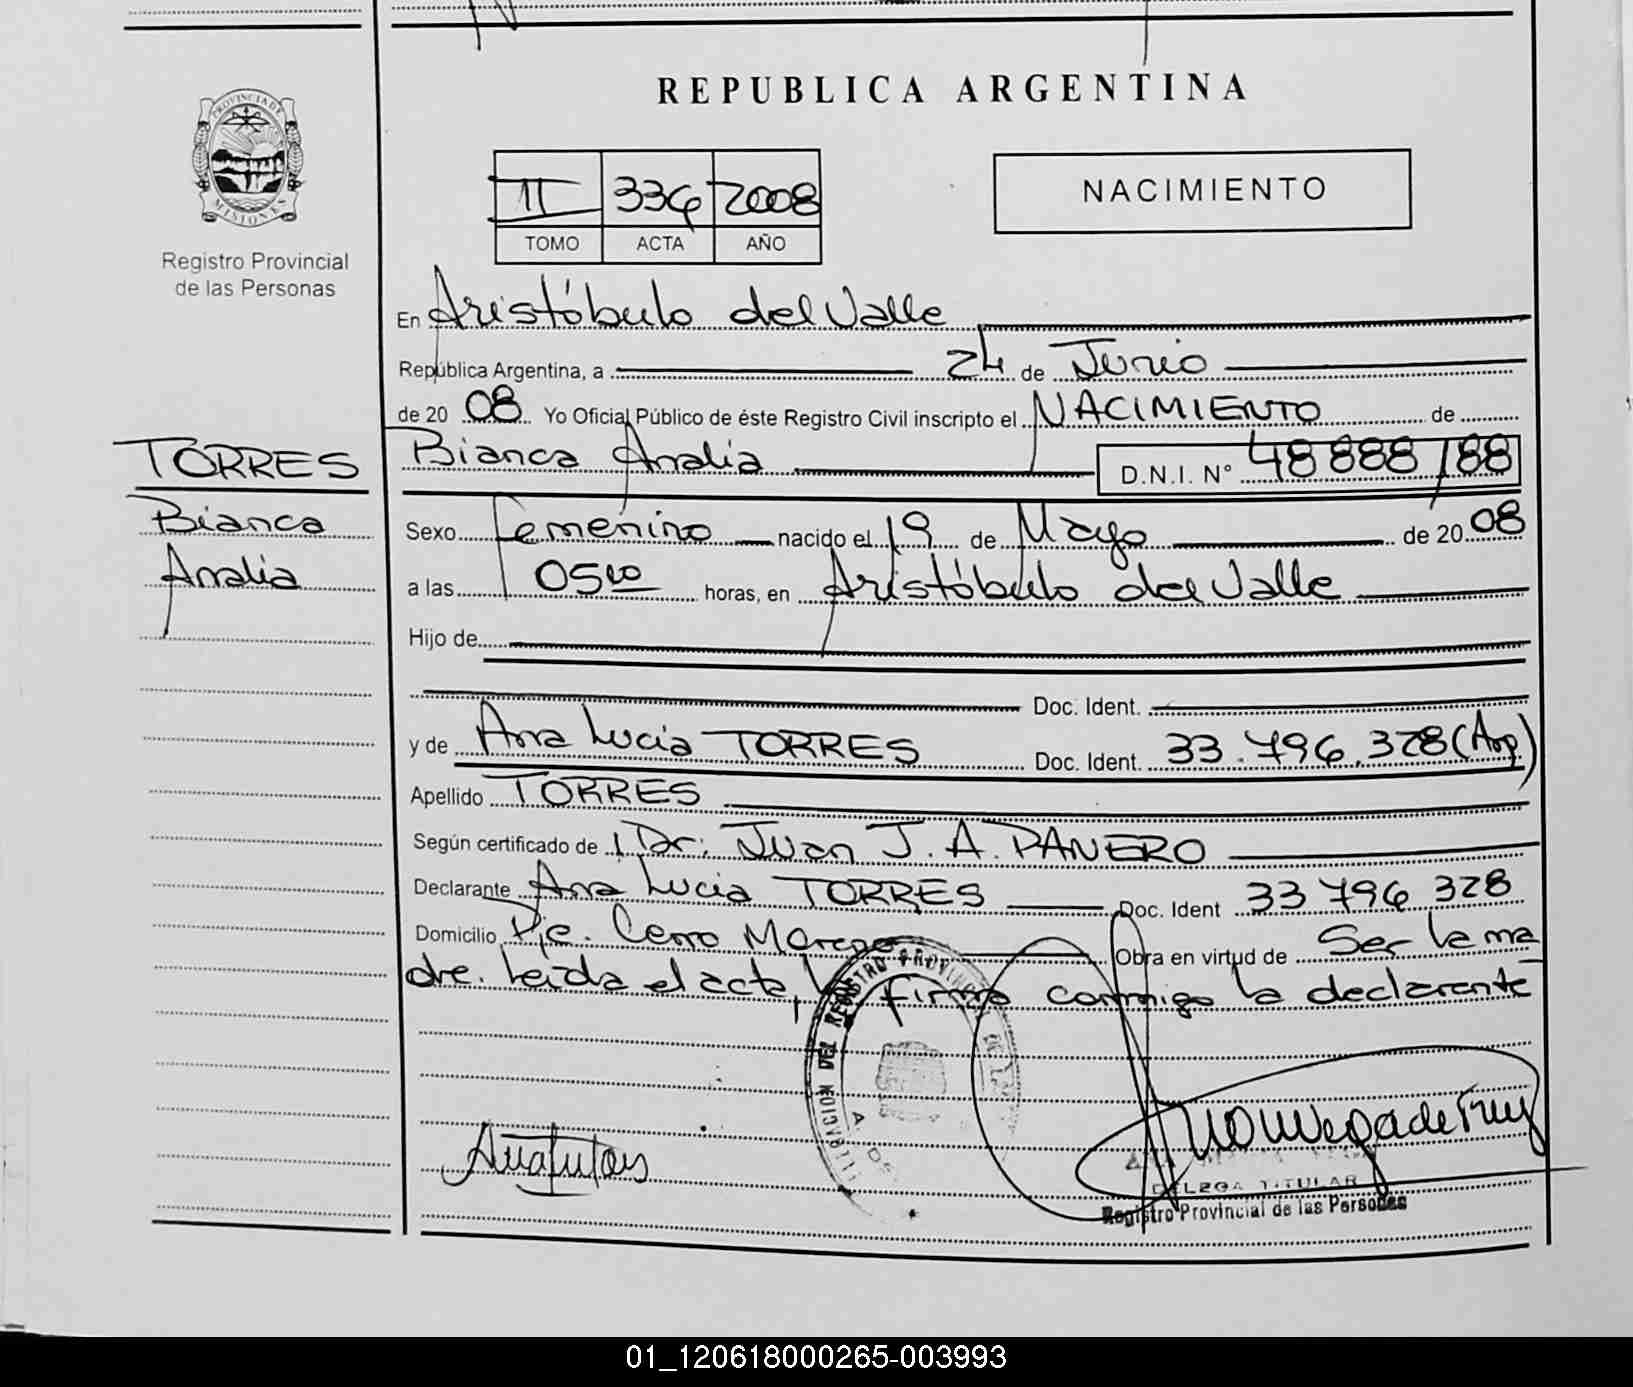 REPUBLICA ARGENTINA
PROVINCIA DE
MISIONES
Registro Provincial
de las Personas
II 336 2008
TOMO ACTA AÑO
NACIMIENTO
En Aristóbulo del Valle
República Argentina, a 24 de Junio
de 20 08 Yo Oficial Público de éste Registro Civil inscripto el NACIMIENTO de
Bianca Analia D.N.I. N° 48888188
TORRES
Bianca
Analia
Sexo Femenino nacido el 19 de Mayo de 20 08
a las 05 00 horas, en Aristóbulo del Valle
Hijo de
Doc. Ident.
y de Ana Lucia TORRES Doc. Ident. 33.796.328 (Arg)
Apellido TORRES
Según certificado de Dr. Juan J. A. PANERO
Declarante Ana Lucia TORRES Doc. Ident 33 796 328
Domicilio Pje. Cerro Moreno Obra en virtud de Ser la ma
dre. Leida el acta, firma conmigo la declarante
DEL REGISTRO PROVINCIAL DE LAS
DELEGA TITULAR
Registro Provincial de las Personas
01_120618000265-003993